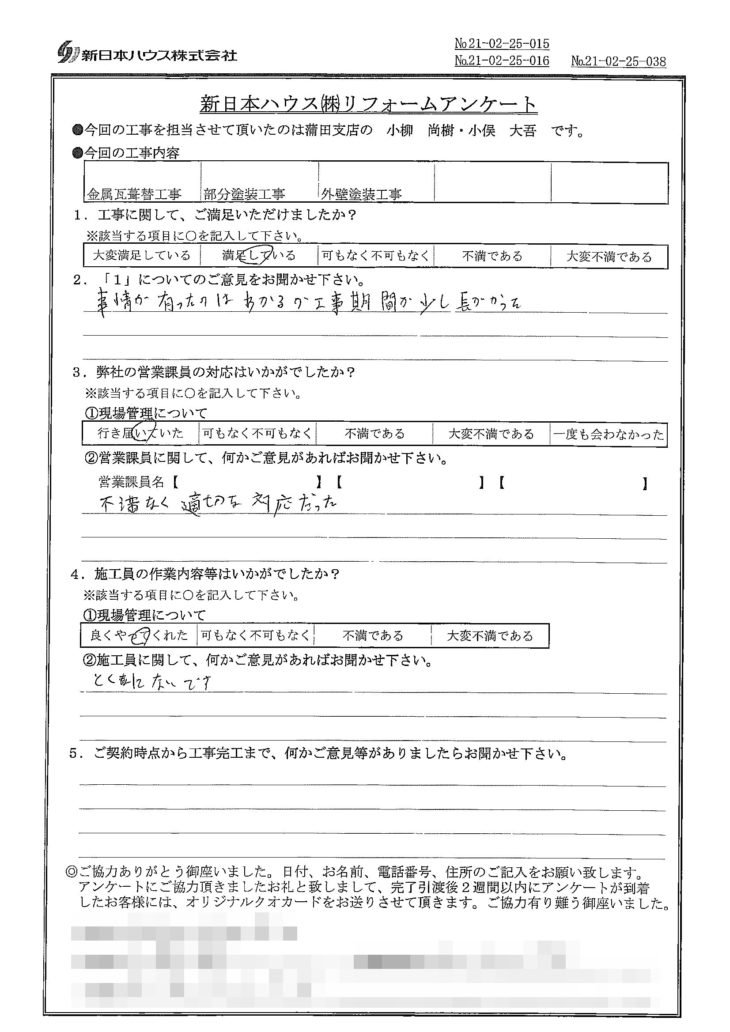 新日本ハウス株式会社
No.21-02-25-015
No.21-02-25-016 No.21-02-25-038
新日本ハウス㈱リフォームアンケート
●今回の工事を担当させて頂いたのは蒲田支店の 小柳 尚樹・小俣 大吾 です。
●今回の工事内容
金属瓦葺替工事 部分塗装工事 外壁塗装工事
1．工事に関して、ご満足いただけましたか？
※該当する項目に○を記入して下さい。
大変満足している 満足している 可もなく不可もなく 不満である 大変不満である
2．「1」についてのご意見をお聞かせ下さい。
事情が有ったのはわかるが工事期間が少し長かった
3．弊社の営業課員の対応はいかがでしたか？
※該当する項目に○を記入して下さい。
①現場管理について
行き届いていた 可もなく不可もなく 不満である 大変不満である 一度も会わなかった
②営業課員に関して、何かご意見があればお聞かせ下さい。
営業課員名【 】【 】【 】
不満なく適切な対応だった
4．施工員の作業内容等はいかがでしたか？
※該当する項目に○を記入して下さい。
①現場管理について
良くやってくれた 可もなく不可もなく 不満である 大変不満である
②施工員に関して、何かご意見があればお聞かせ下さい。
とくにないです
5．ご契約時点から工事完工まで、何かご意見等がありましたらお聞かせ下さい。
◎ご協力ありがとう御座いました。日付、お名前、電話番号、住所のご記入をお願い致します。
アンケートにご協力頂きましたお礼と致しまして、完了引渡後2週間以内にアンケートが到着
したお客様には、オリジナルクオカードをお送りさせて頂きます。ご協力有り難う御座いました。